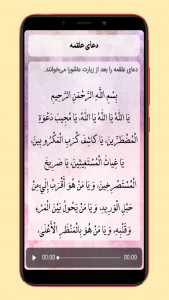 دعای علقمه
دعای علقمه را بعد از زیارت عاشورا می‌خوانند.
بِسْمِ اللَّهِ الرَّحْمَنِ الرَّحِيمِ
يَا اللَّهُ يَا اللَّهُ يَا اللَّهُ، يَا مُجِيبَ دَعْوَةِ
الْمُضْطَرِّينَ، يَا كَاشِفَ كُرَبِ الْمَكْرُوبِينَ،
يَا غِيَاثَ الْمُسْتَغِيثِينَ، يَا صَرِيخَ
الْمُسْتَصْرِخِينَ، وَ يَا مَنْ هُوَ أَقْرَبُ إِلَيَّ مِنْ
حَبْلِ الْوَرِيدِ، وَ يَا مَنْ يَحُولُ بَيْنَ الْمَرْءِ
وَ قَلْبِهِ، وَ يَا مَنْ هُوَ بِالْمَنْظَرِ الْأَعْلَى،
00:00 00:00